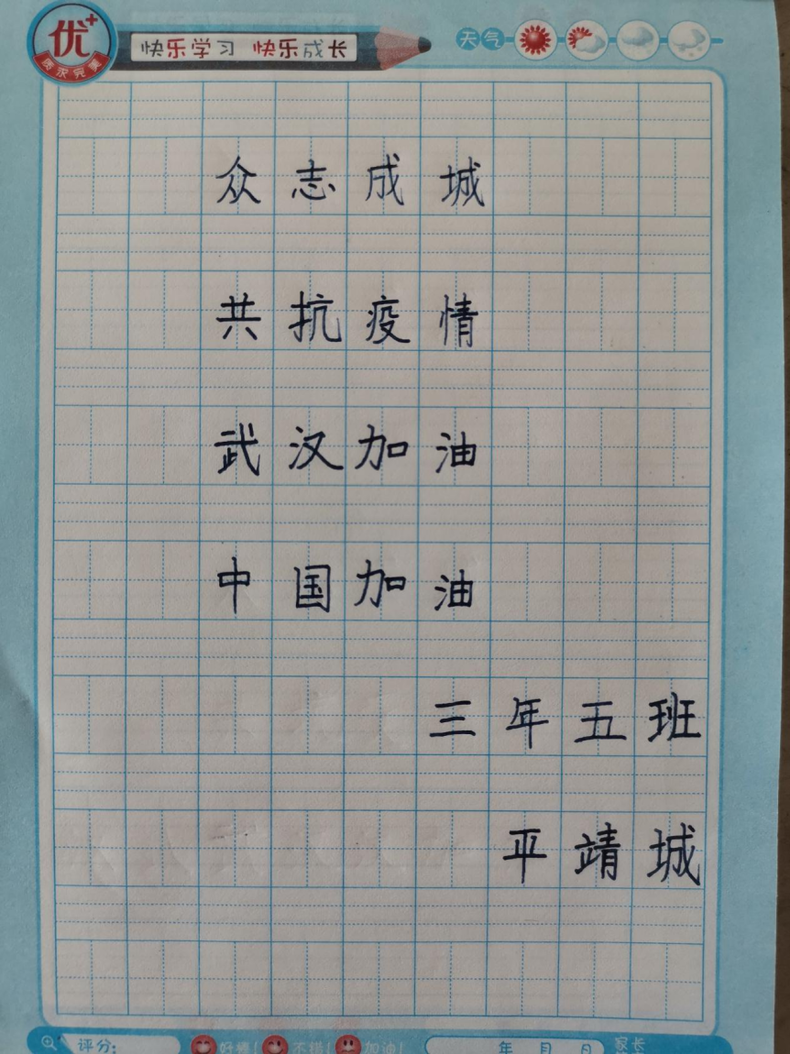 优+
质求完美
快乐学习 快乐成长
天气
众志成城
共抗疫情
武汉加油
中国加油
三年五班
平靖城
评分:
好棒! 不错! 加油!
年 月 日
家长